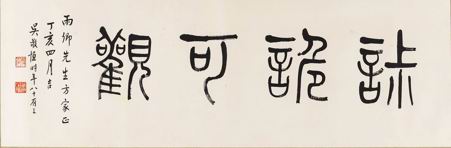 諔詭可觀
雨卿先生方家正
丁亥四月吉
吳敬恆時年八十有三